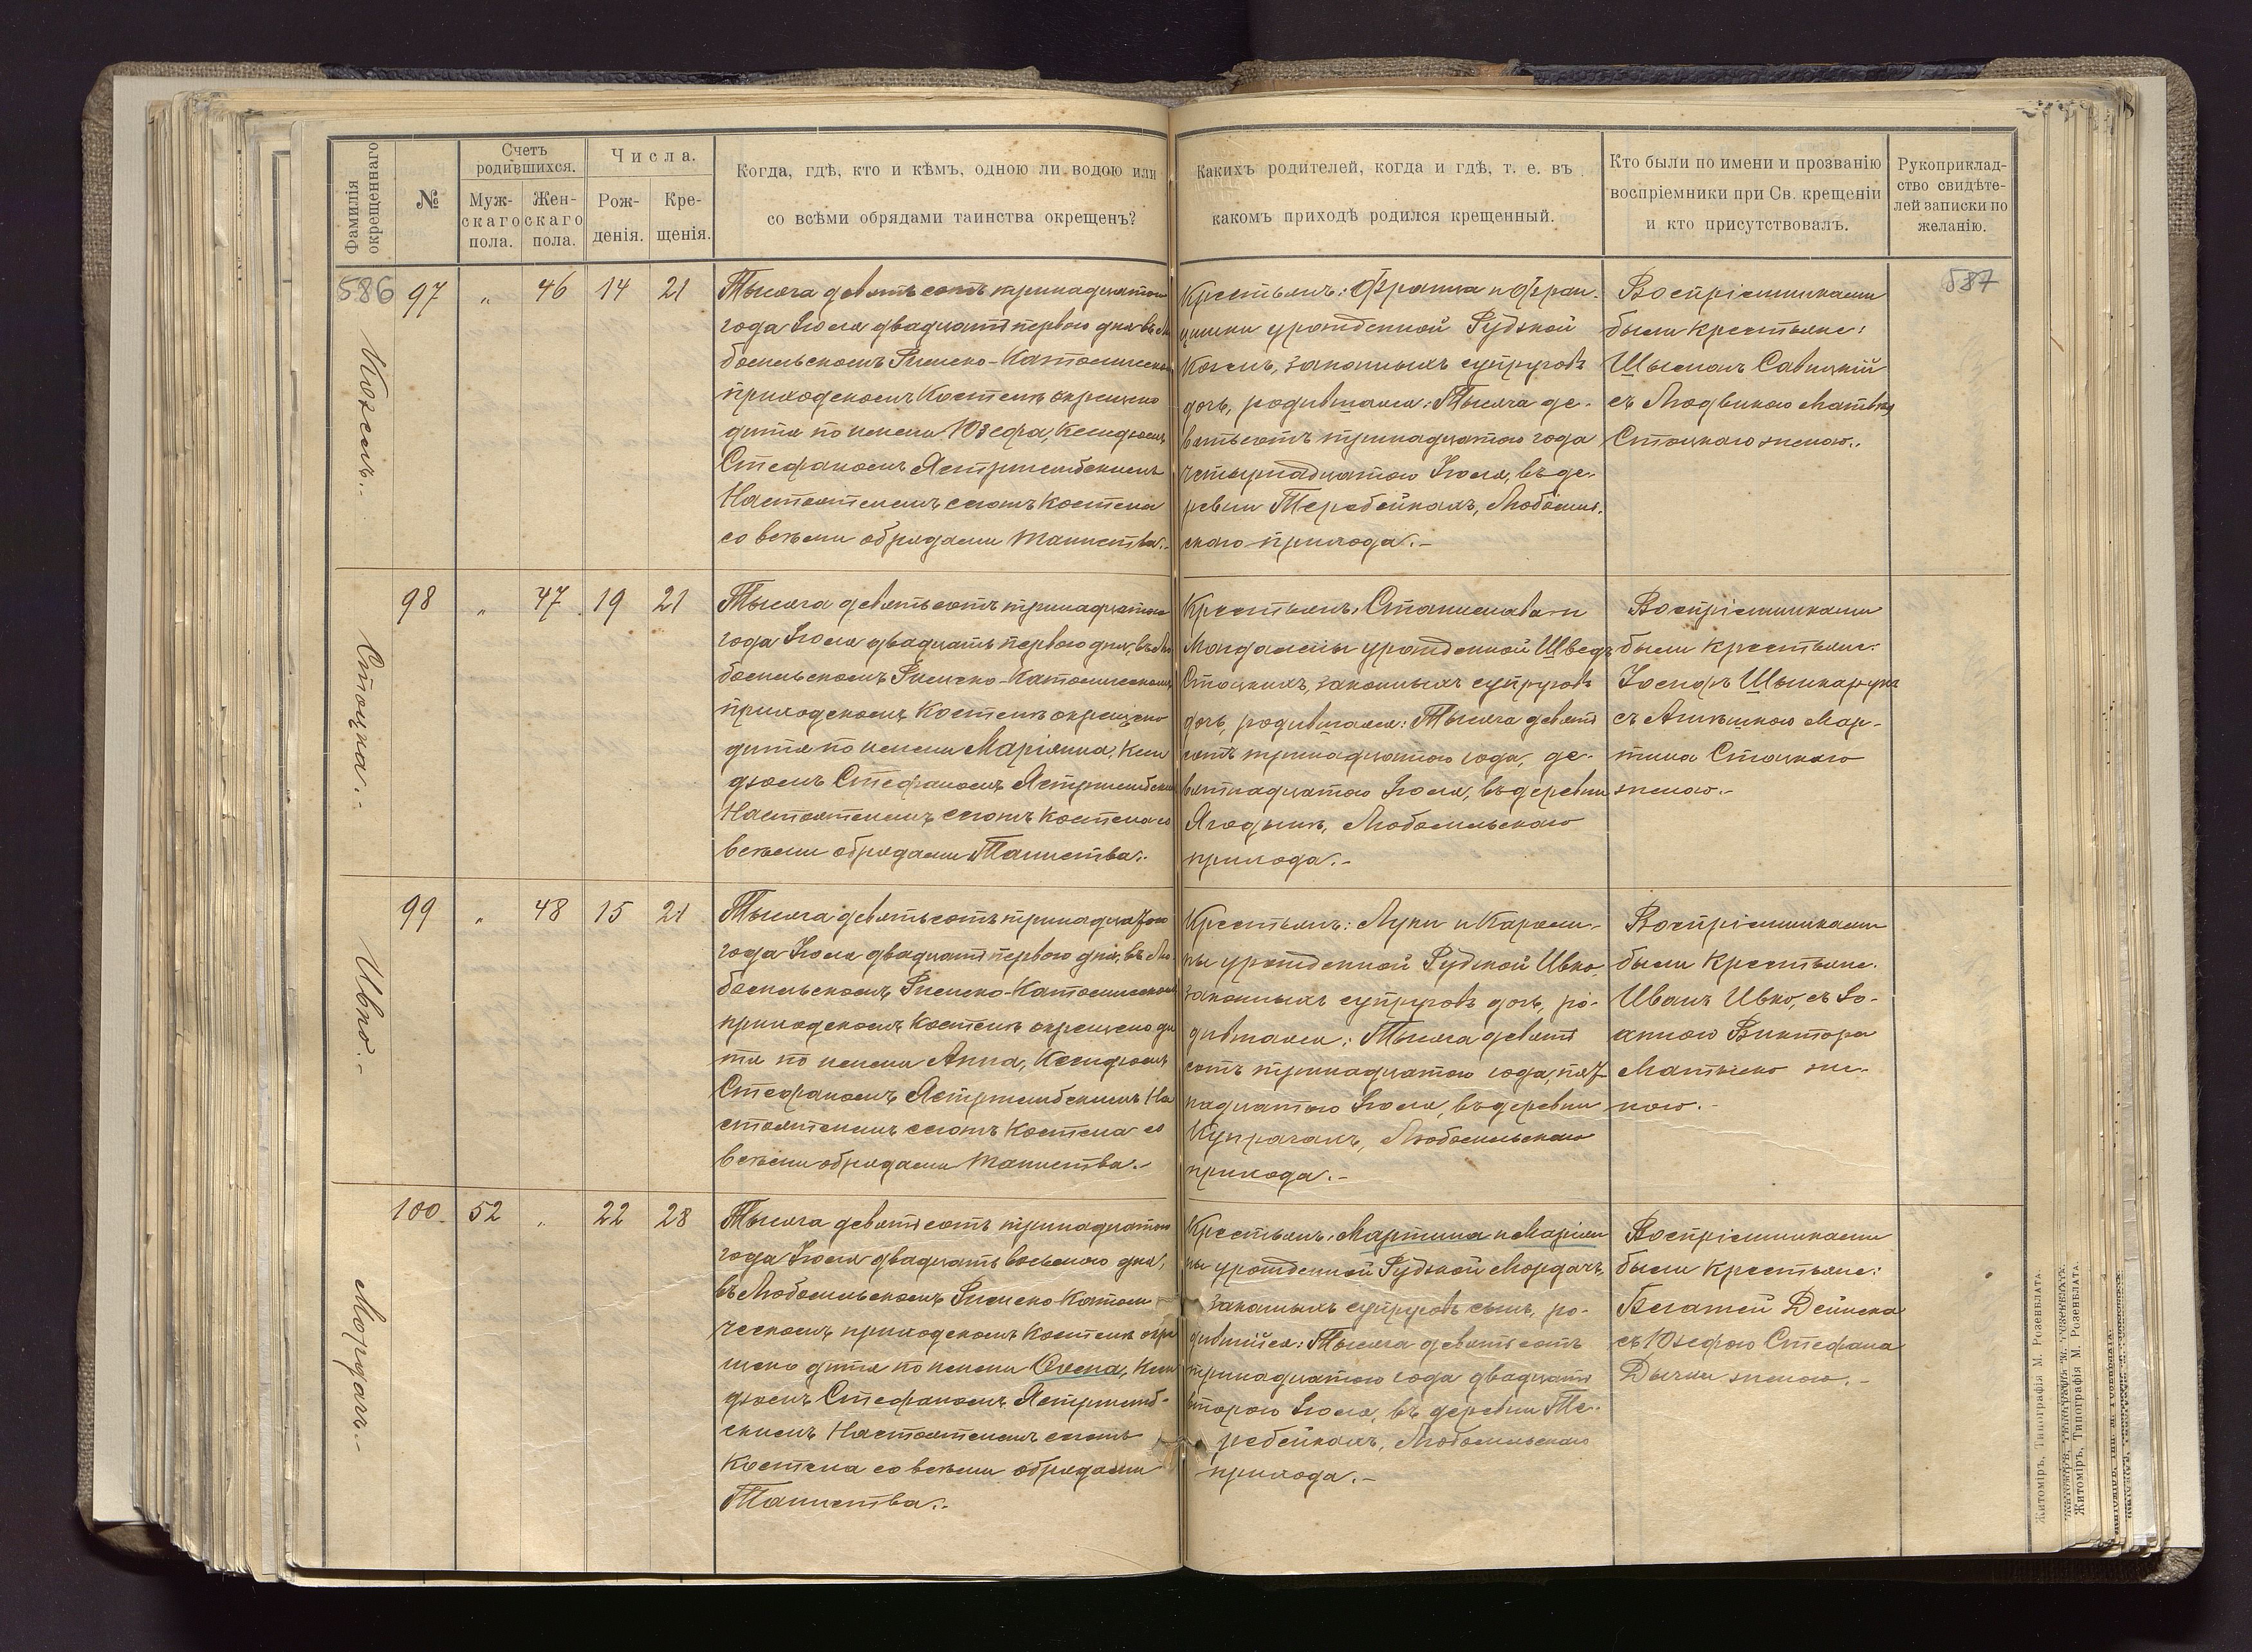 Фамилія окрещеннаго
№
Счетъ родившихся.
Мужскаго пола.
Женскаго пола.
Числа.
Рожденія.
Крещенія.
Когда, гдѣ, кто и кѣмъ, одною ли водою или
со всѣми обрядами таинства окрещенъ?
Какихъ родителей, когда и гдѣ, т. е. въ
какомъ приходѣ родился крещенный.
Кто были по имени и прозванію
воспріемники при Св. крещеніи
и кто присутствовалъ.
Рукоприклад-
ство свидѣте-
лей записки по
желанію.
586
587
97 „ 46 14 21
Козелъ.
Тысяча девятьсотъ тринадцатаго
года Іюля двадцать перваго дня въ Лю
бомльскомъ Римско-Католическомъ
приходскомъ Костелѣ окрещено
дитя по имени Юзефа, Ксендзомъ
Стефаномъ Ястржембскимъ
Настоятелемъ сегожъ Костела
со всѣми обрядами таинства.
Крестьянъ: Франца и Фран-
цишки урожденной Рудзкой
Козелъ, законныхъ супруговъ
дочь, родившаяся: Тысяча де-
вятьсотъ тринадцатаго года
четырнадцатаго Іюля, въ де-
ревни Теребейкахъ, Любомль-
скаго прихода.-
Воспріемниками
были крестьяне:
Шыманъ Савицкій
съ Людвикою Матвѣя
Стоцкаго женою.
98 „ 47 19 21
Стоцка.-
Тысяча девятьсотъ тринадцатаго
года Іюля двадцать перваго дня, въ Лю
бомльскомъ Римско-Католическомъ
приходскомъ Костелѣ окрещено
дитя по имени Маріянна, Ксен
дзомъ Стефаномъ Ястржембским
Настоятелемъ сегожъ Костела со
всѣми обрядами Таинства.
Крестьянъ: Станислава и
Магдалены урожденной Шведъ
Стоцкихъ, законныхъ супруговъ
дочь, родившаяся: Тысяча девять
сотъ тринадцатаго года, де-
вятнадцатаго Іюля, въ деревни
Ягодынѣ, Любомльскаго
прихода.-
Воспріемниками
были крестьяне:
Іосифъ Шынкарукъ
съ Мар-
тина Стоцкаго
женою.-
99 „ 48 15 21
Ивко.-
Тысяча девятьсотъ тринадцатаго
года Іюля двадцать перваго дня, въ Лю
бомльскомъ Римско-Католическомъ
приходскомъ Костелѣ окрещено ди
тя по имени Анна, Ксендзомъ
Стефаномъ Ястржембскимъ На
стоятелемъ сегожъ Костела со
всѣми обрядами таинства.-
Крестьянъ: Луки и Кароли-
ны урожденной Рудзкой Ивко,
законныхъ супруговъ дочь, ро-
дившаяся: Тысяча девять
сотъ тринадцатаго года, пят-
надцатаго Іюля, въ деревни
Купрачахъ, Любомльскаго
прихода.-
Воспріемниками
были Крестьяне:
Иванъ Ивко, съ Іо-
анною Виктора
Матыско же-
ною.-
100. 52 „ 22 28
Мордачъ.-
Тысяча девятьсотъ тринадцатаго
года Іюля двадцать восьмаго дня,
въ Любомльскомъ Римско Катол
ческомъ приходскомъ Костелѣ окре
щено дитя по имени Ксен
дзомъ Стефаномъ Ястржемб-
скимъ Настоятелемъ сегожъ
Костела со всѣми обрядами
Таинства.
Крестьянъ: Мартина и Маріян
ны урожденной Рудзкой Мордачъ,
законныхъ супруговъ сынъ, ро-
дившійся: Тысяча девятьсотъ
тринадцатаго года двадцать
втораго Іюля, въ деревни Те-
ребейкахъ, Любомльскаго
прихода.-
Воспріемниками
были Крестьяне:
Дейнека
съ Юзефою Стефана
женою.-
Житоміръ, Типографія М. Розенблата.
Житоміръ, Типографія М. Розенблата.